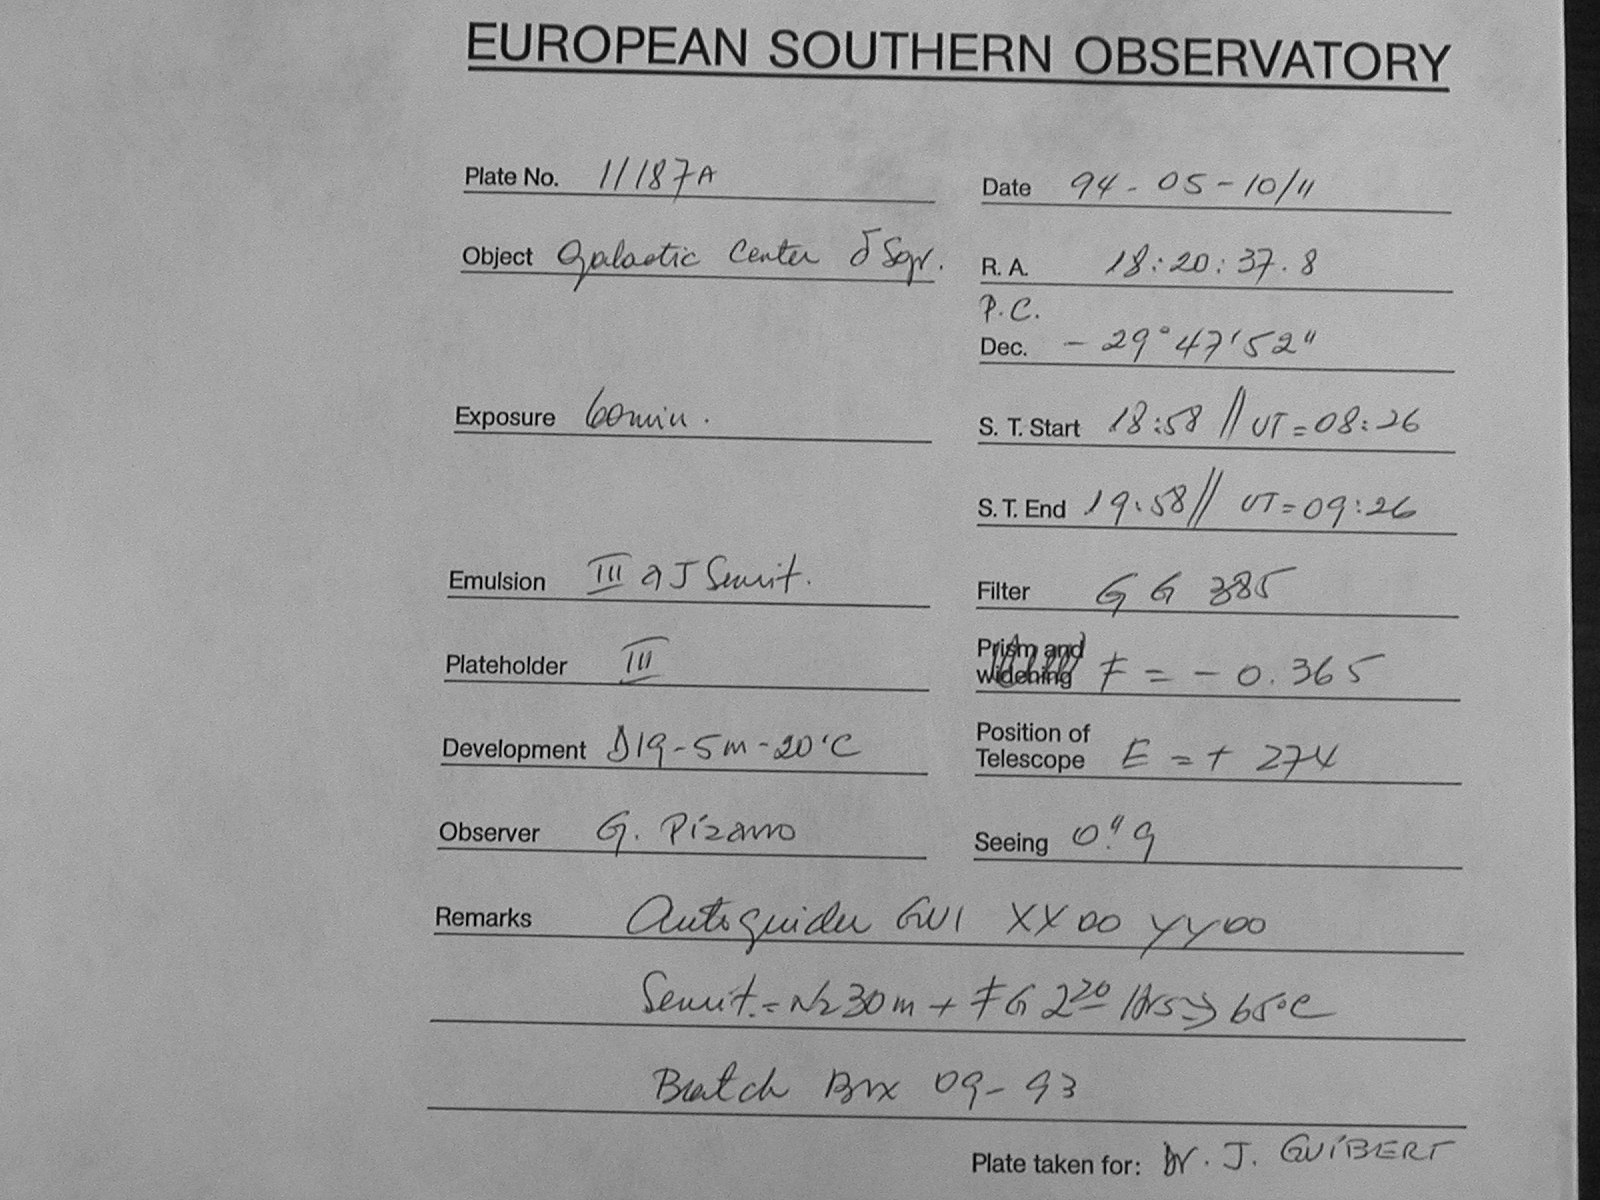 EUROPEAN SOUTHERN OBSERVATORY
Plate No. 11187A
Date 94-05-10/11
Object Galactic Center δ Sgr.
R. A. 18:20:37.8
P.C.
Dec. - 29°47'52"
Exposure 60min.
S. T. Start 18:58 // UT=08:26
S. T. End 19:58 // UT=09:26
Emulsion III a J Sensit.
Filter GG 385
Plateholder III
Prism and widening F = - 0.365
Development D19-5m-20°C
Position of Telescope E = + 274
Observer G. Pizarro
Seeing 0".9
Remarks Autoguider GUI XX00 YY00
Sensit.=N2 30m + FG 2 20 Hrs => 65°C
Batch Box 09-93
Plate taken for: Dr. J. GUIBERT